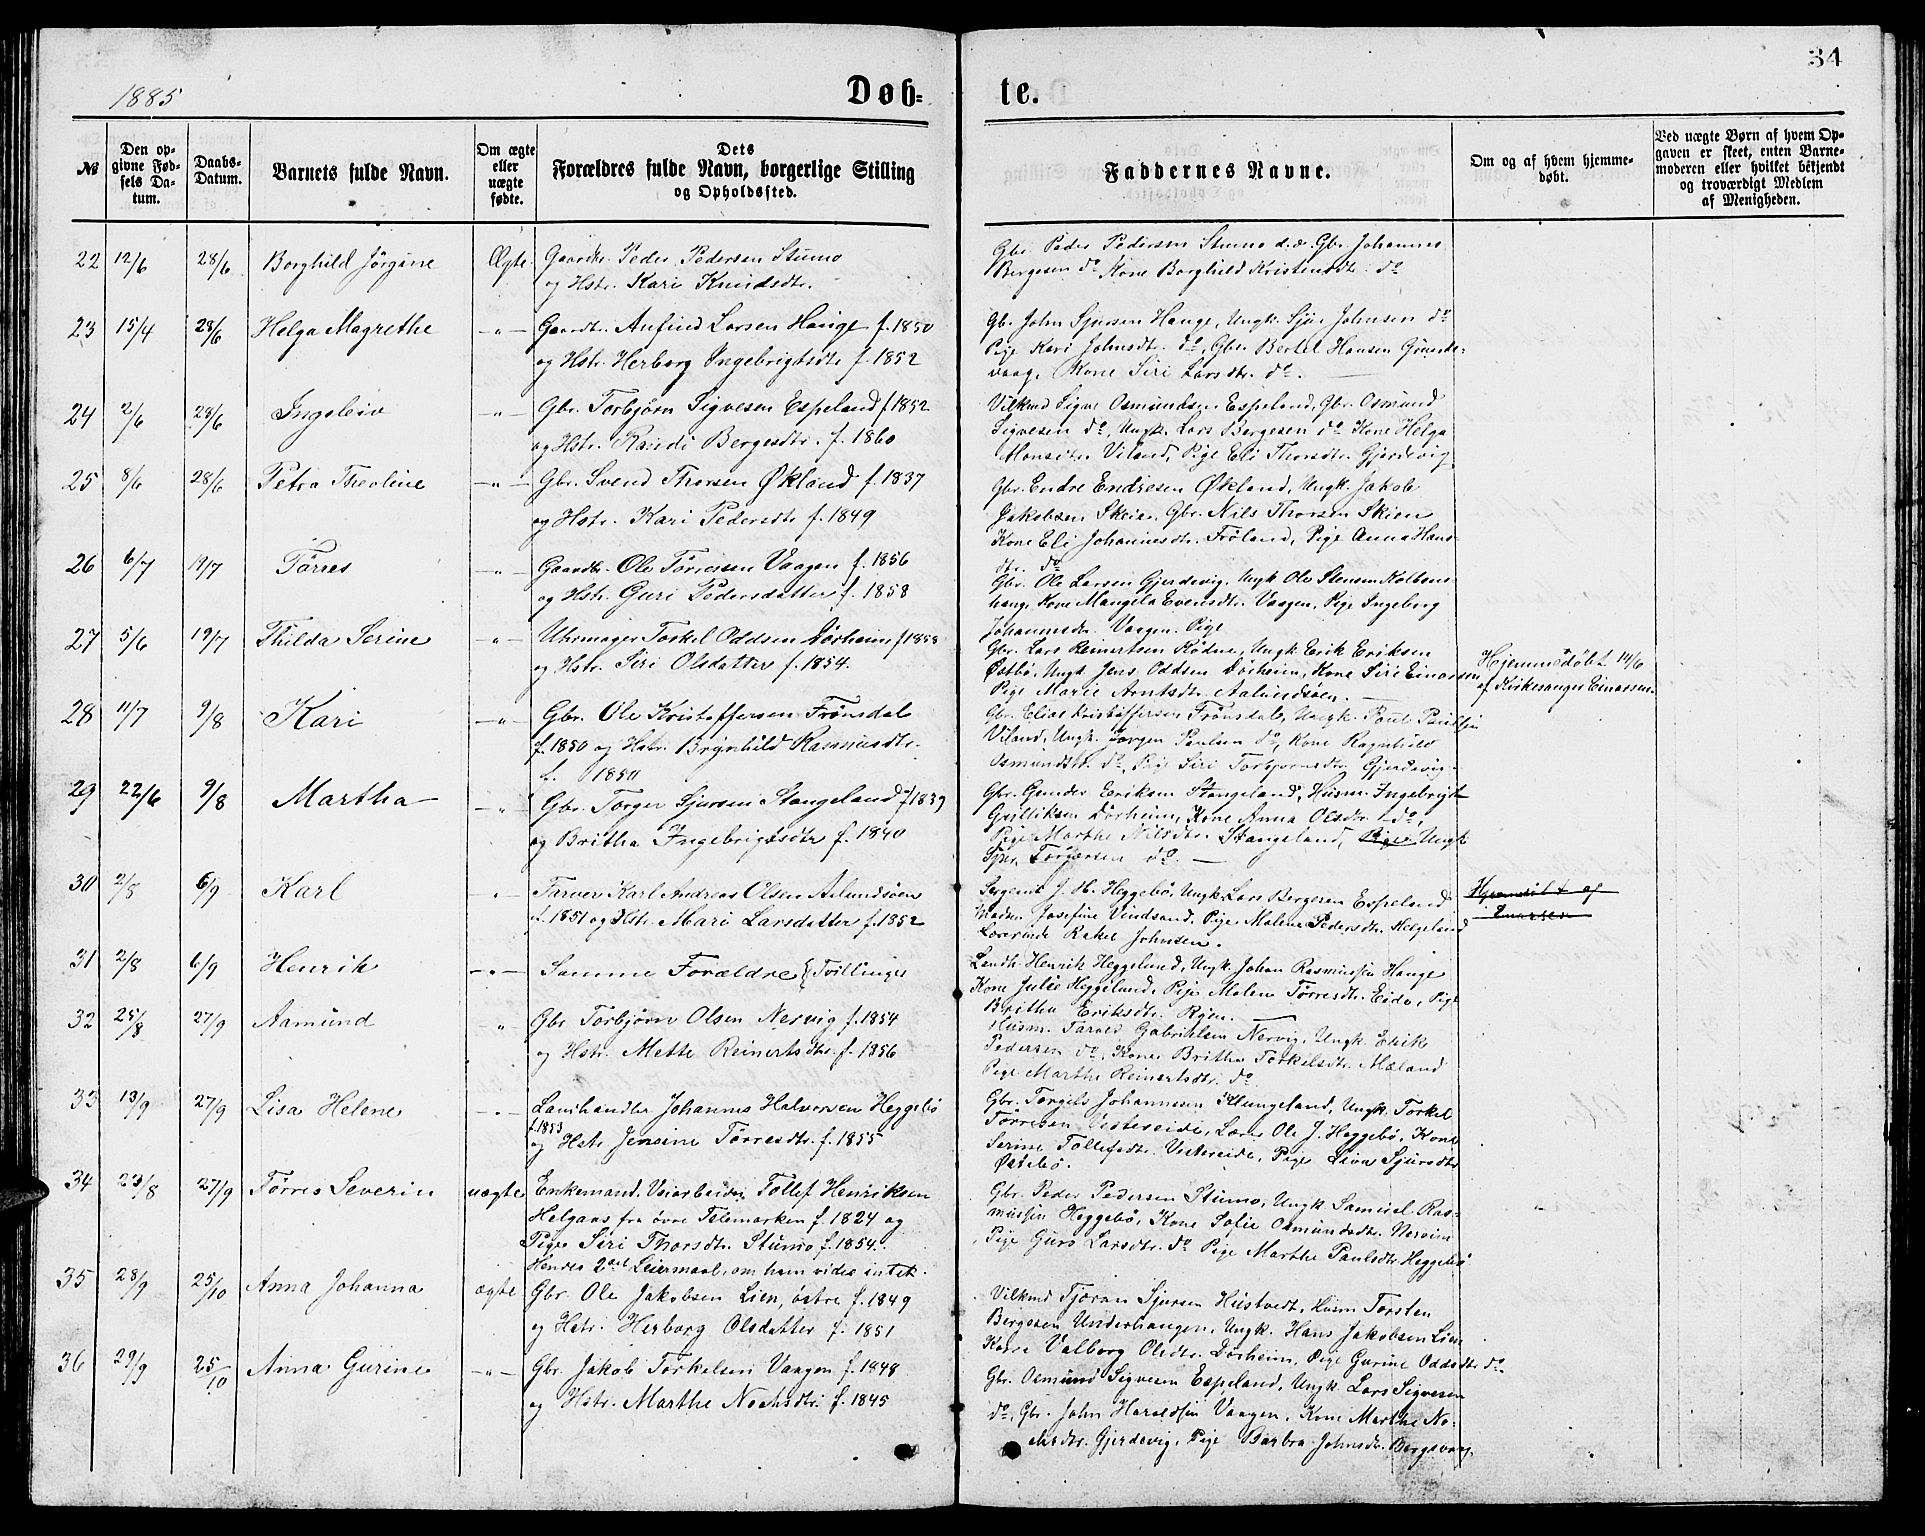 34
1885
Døb-
te.
№
Den op-
givne Fød-
sels Da-
tum.
Daabs-
Datum.
Barnets fulde Navn.
Om ægte
eller
uægte
fødte.
Dets
Forældres fulde Navn, borgerlige Stilling
og Opholdssted.
Faddernes Navne.
Om og af hvem hjemme-
døbt.
Ved uægte Børn af hvem Op-
gaven er skeet, enten Barne-
moderen eller hvilket bekjendt
og troværdigt Medlem
af Menigheden.
22 12/6 28/6 Borghild Jørgine Ægte Gaardbr. Peder Pedersen Stumo
og Hstr. Kari Knudsdtr.
Gbr. Peder Pedersen Stumo d.æ. Gbr. Johannes
Bergesen do Kone Borghild Kristensdtr. do
23 15/4 28/6 Helga Magrethe -"- Gaardbr. Anfind Larsen Hauge f. 1850
og Hstr. Herborg Ingebrigtsdtr f. 1852
Gb. John Sjursen Hauge, Ungk. Sjur Johnsen do
Pige Kari Johnsdtr. do, Gbr. Bertel Hansen
vaag, Kone Siri Larsdtr. do.
24 2/6 28/6 Ingeleiv -"- Gbr. Torbjørn Sigvesen Espeland f 1852
og Hstr. Randi Bergesdtr. f. 1860
Vilkmd Sigve Osmundsen Espeland, Gbr. Osmund
Sigvesen do, Ungk. Lars Bergesen do Kone Helga
Monsdtr. Viland, Pige Eli Thorsdtr. Gjerdevig
25 8/6 28/6 Petra Theoline -"- Gbr. Svend Thorsen Økland f. 1837
og Hstr. Kari Pedersdtr f. 1849
Gbr. Endre Endresen Økland, Ungk. Jakob
Jakobsen Skeie, Gbr. Nils Thorsen Skien
Kone Eli Johannesdtr. Frøland, Pige Anna Hans-
dtr. do
26 6/7 19/7 Tørres -"- Gaardbr. Ole Tørresen Vaagen f. 1856
og Hstr. Guri Pedersdatter f. 1858
Gbr. Ole Larsen Gjerdevig, Ungk Ole Stensen Kolbens-
haug, Kone Mangela Evensdtr. Vaagen, Pige Ingeborg
Johannesdtr. Vaagen. Pige
27 5/6 19/7 Thilda Serine -"- Uhrmager Torkel Oddsen Dørheim f 1853
og Hstr. Siri Olsdatter f. 1854.
Gbr. Lars Reinertsen Rødne, Ungk Erik Eriksen
Østbø, Ungk Jens Oddsen Dørheim, Kone Siri Einarsen
Pige Marie Arntsdtr. Aalundsøen.
Hjemmedøbt 14/6
af Kirkesanger Einarsen.
28 11/7 9/8 Kari -"- Gbr. Ole Kristoffersen Frønsdal
f. 1850 og Hstr. Brynhild Rasmusdtr.
f. 1850
Gbr. Elias Kristoffersen Frønsdal, Ungk. Paul Paulsen
Viland, Ungk. Jørgen Paulsen do, Kone Ragnhild
Osmundsdtr. do, Pige Siri Torbjørnsdtr. Gjerdevig.
29 22/6 9/8 Martha -"- Gbr. Torger Sjursen Stangeland f 1839
og Britha Ingebrigtsdtr f. 1840
Gbr. Gunder Eriksen Stangeland, Husm. Ingebrigt
Gulliksen Dørheim, Kone Anna Olsdtr. do,
Pige Marthe Nilsdtr. Stangeland, Pige Ungk.
Sjur Torgersen do.
30 2/8 6/9 Karl -"- Farver Karl Andreas Olsen Aalundsøen
f. 1851 og Hstr. Mari Larsdatter f. 1852
Sergeant J. H. Heggebø, Ungk Lars Bergesen Espeland
Madm. Josefine Vindsand, Pige Malene Pedersdtr. Helgeland
Lærerinde Rakel Johnsen.
Hjemmedøbt af
Einarsen
31 2/8 6/9 Henrik -"- Samme Forældre { Tvillinger
Landh. Henrik Heggelund, Ungk. Johan Rasmussen Hauge
Kone Julie Heggelund, Pige Malene Tørresdtr. Eide, Pige
Britha Eriksdtr.
32 25/8 27/9 Aamund " Gbr Torbjørn Olsen Nervig f. 1854
og Hstr. Mette Reinertsdtr. f. 1856
Husm. Tarald Gabrielsen Nervig, Ungk. Erik
Pedersen do, Kone Britha Torkelsdtr. Mæland
Pige Marthe Reinertsdtr. do
33 13/9 27/9 Lisa Helene -"- Landhandler Johannes Halvorsen Heggebø
f. 1853
og Hstr Jensine Tørresdtr. f. 1855
Gbr. Torgils Johannesen Klungeland, Ungk. Torkel
Tørresen Vestereide, Lærer Ole J. Heggebø, Kone
Serine Tollefsdtr. Vestereide, Pige Lina Sjursdtr
Østebø.
34 23/8 27/9 Tørres Severin uægte Enkemand, Veiarbeider Tollef Henriksen
Helgaas fra øvre Telemarken f. 1824 og
Pige Siri Thorsdtr. Stumo f. 1854.
Hendes 2det Leiermaal, om ham vides intet.
Gbr. Peder Pedersen Stumo, Ungk Samuel Ras-
mussen Heggebø, Kone Sofie Osmundsdtr. Nerheim
Pige Guro Larsdtr. do Pige Marthe Paulsdtr Heggebø
35 28/9 25/10 Anna Johanna ægte Gbr. Ole Jakobsen Lien, østre f. 1849
og Hstr. Herborg Olsdatter f. 1851
Vilkmd Tjøran Sjursen Hustvedt, Husm Torsten
Bergesen Underhaugen, Ungk. Hans Jakobsen Lien
Kone Valborg Olsdtr. Dørheim, Pige Gurine Oddsdtr do.
36 29/9 25/10 Anna Gurine -"- Gbr. Jakob Torkelsen Vaagen f. 1848
og Hstr. Marthe Noahsdtr. f. 1845
Gbr. Osmund Sigvesen Espeland, Ungk Lars Sigvesen
do, Gbr. John Haraldsen Vaagen, Kone Marthe No-
ahsdtr. Gjerdevig, Pige Barbra Johnsdtr. Borgsvaag.